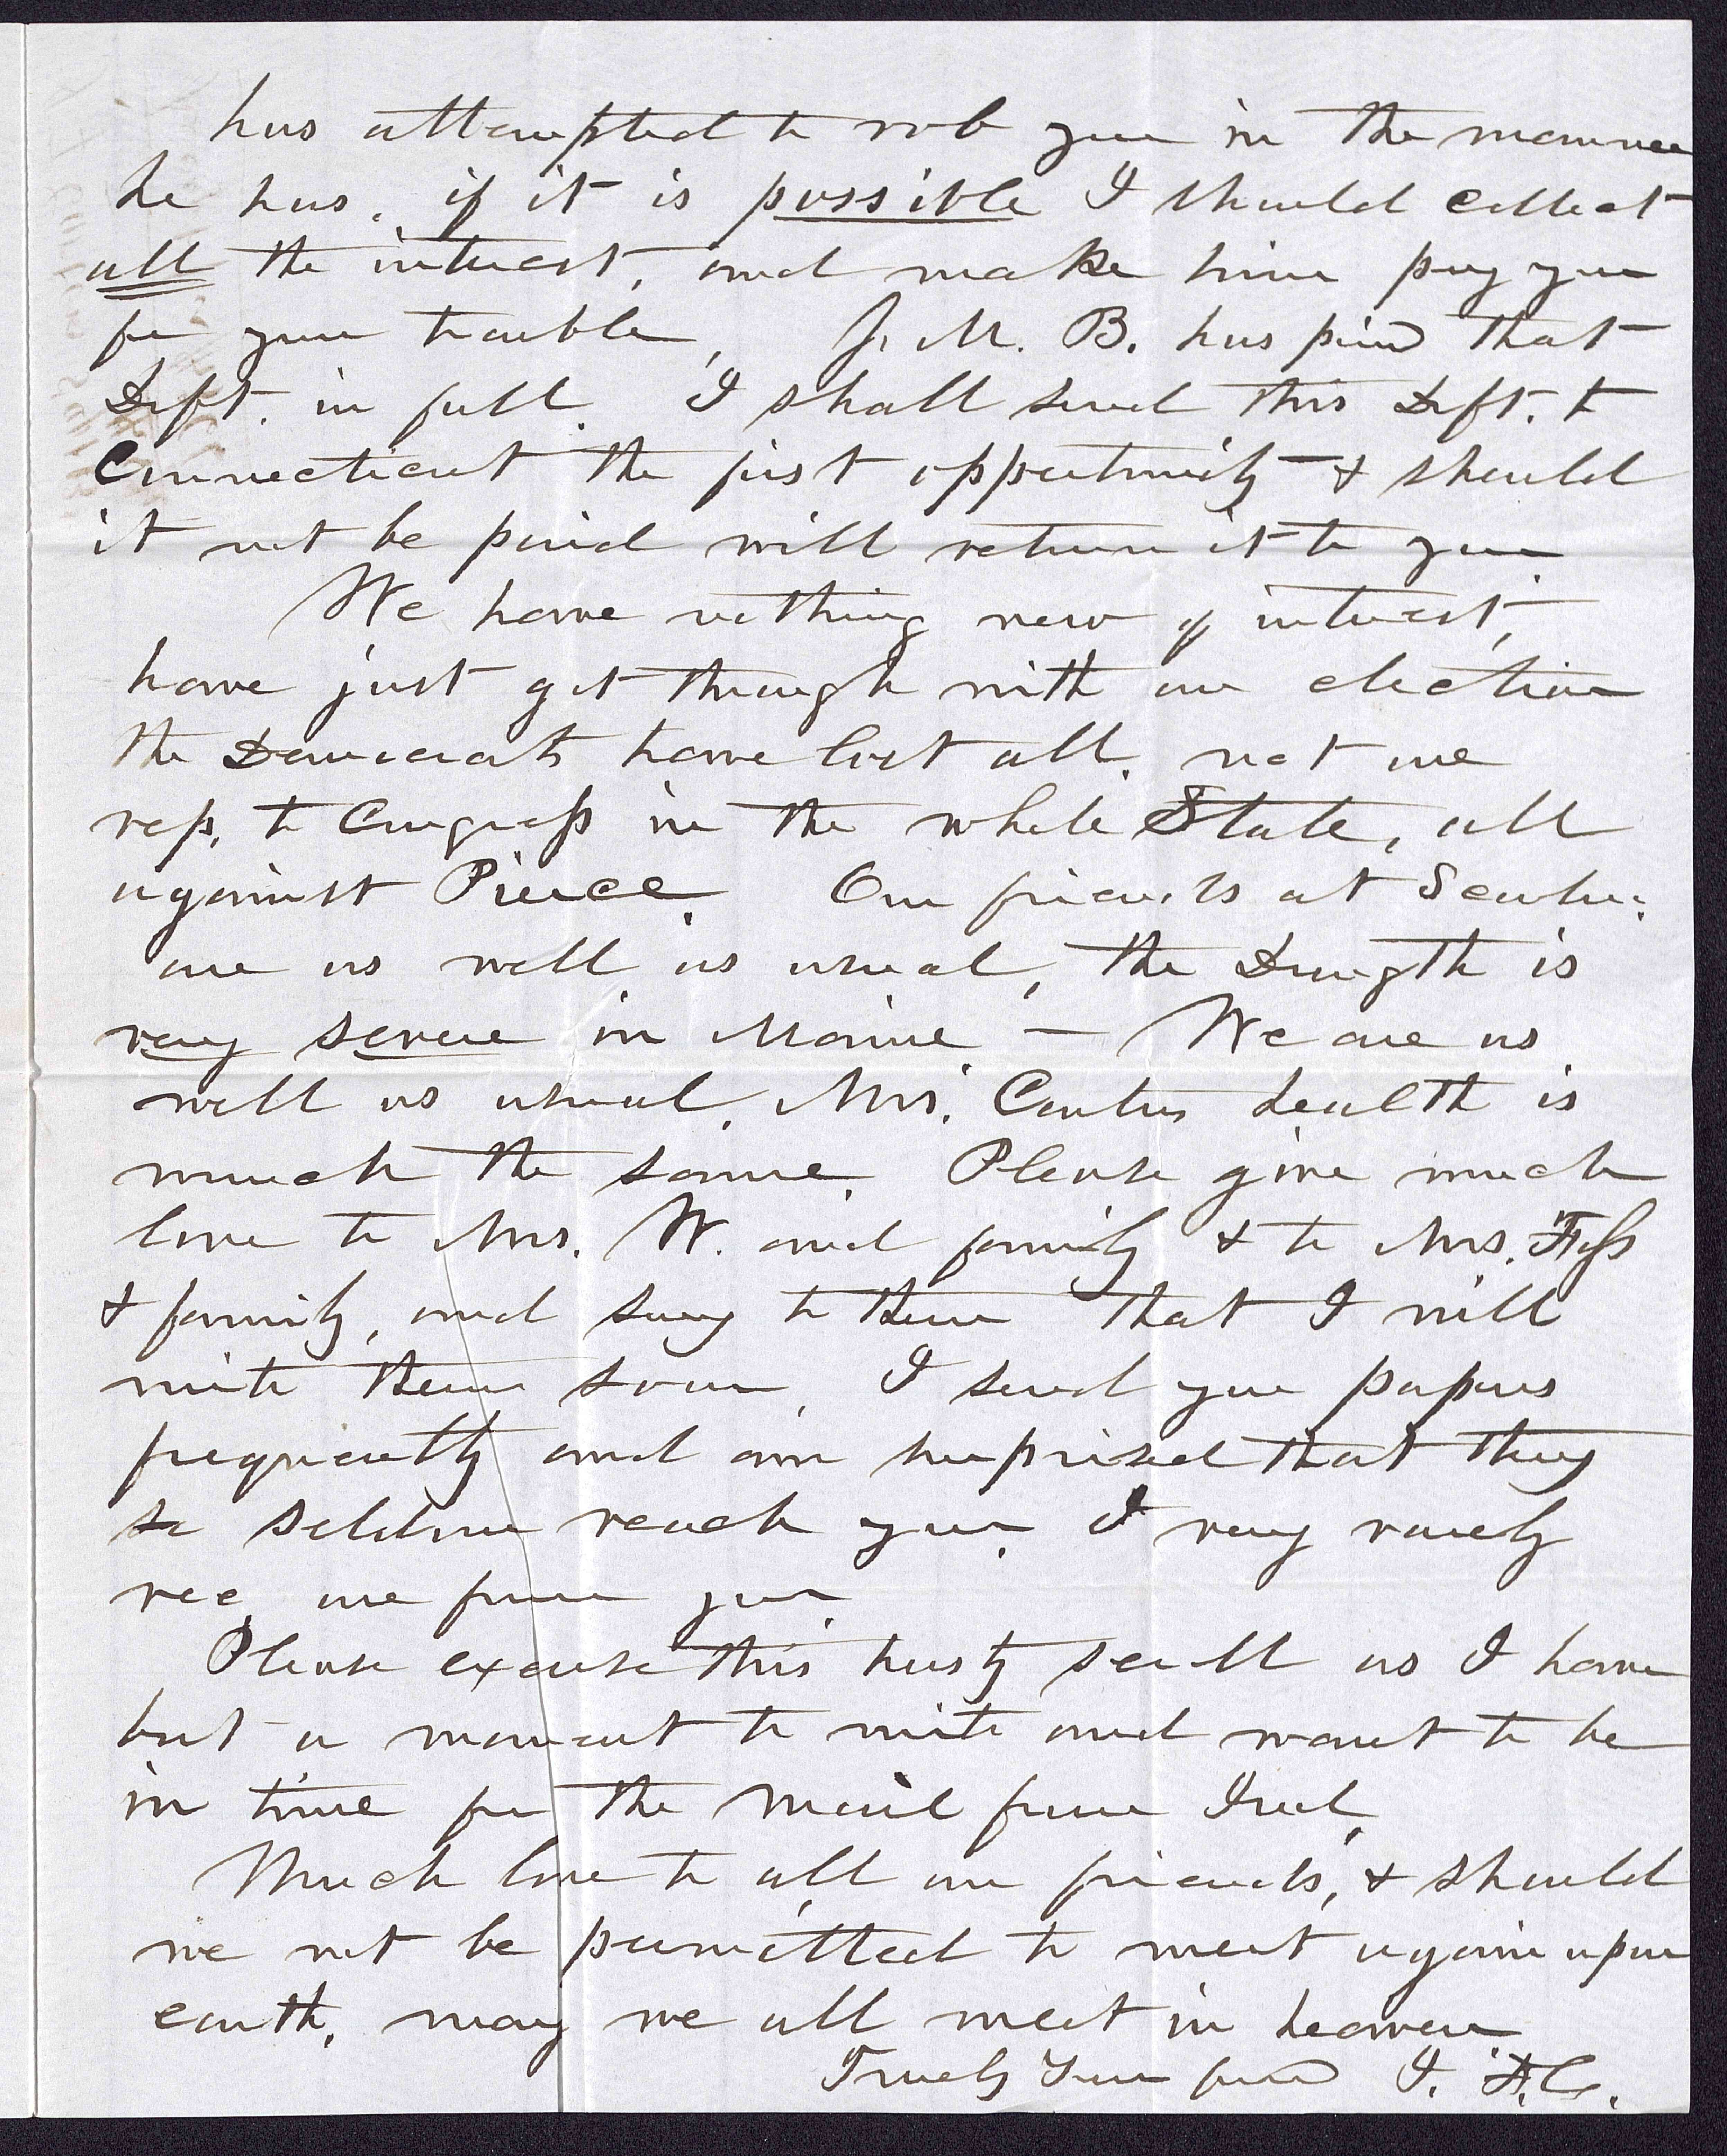 has attempted to rob you in the manner
he has. if it is possible I should collect
all the interest, and make him pay you
for your trouble, J. M. B. has paid that
Dft. in full. I shall send this Dft. to
Connecticut the first opportunity & should
it not be paid will return it to you.
We have nothing new of interest,
have just got through with our election
the Democrats have lost all. not one
rep. to Congress in the whole State, all
against Pierce. Our friends at
are as well as usual, the Drougth is
very severe in Maine — We are as
well as usual, Mrs. Carters health is
much the same. Please give much
love to Mrs. W. and family & to Mrs.
& family, and say to them that I will
write them soon, I send you papers
frequently and am surprised that they
so seldom reach you. I very rarely
rec. one from you.
Please excuse this hasty scrll as I have
but a moment to write and want to be
in time for the mail from Ind.
Much love to all our friends, & should
we not be permitted to meet again upon
earth, may we all meet in heaven.
Truely Your friend J. F. C.